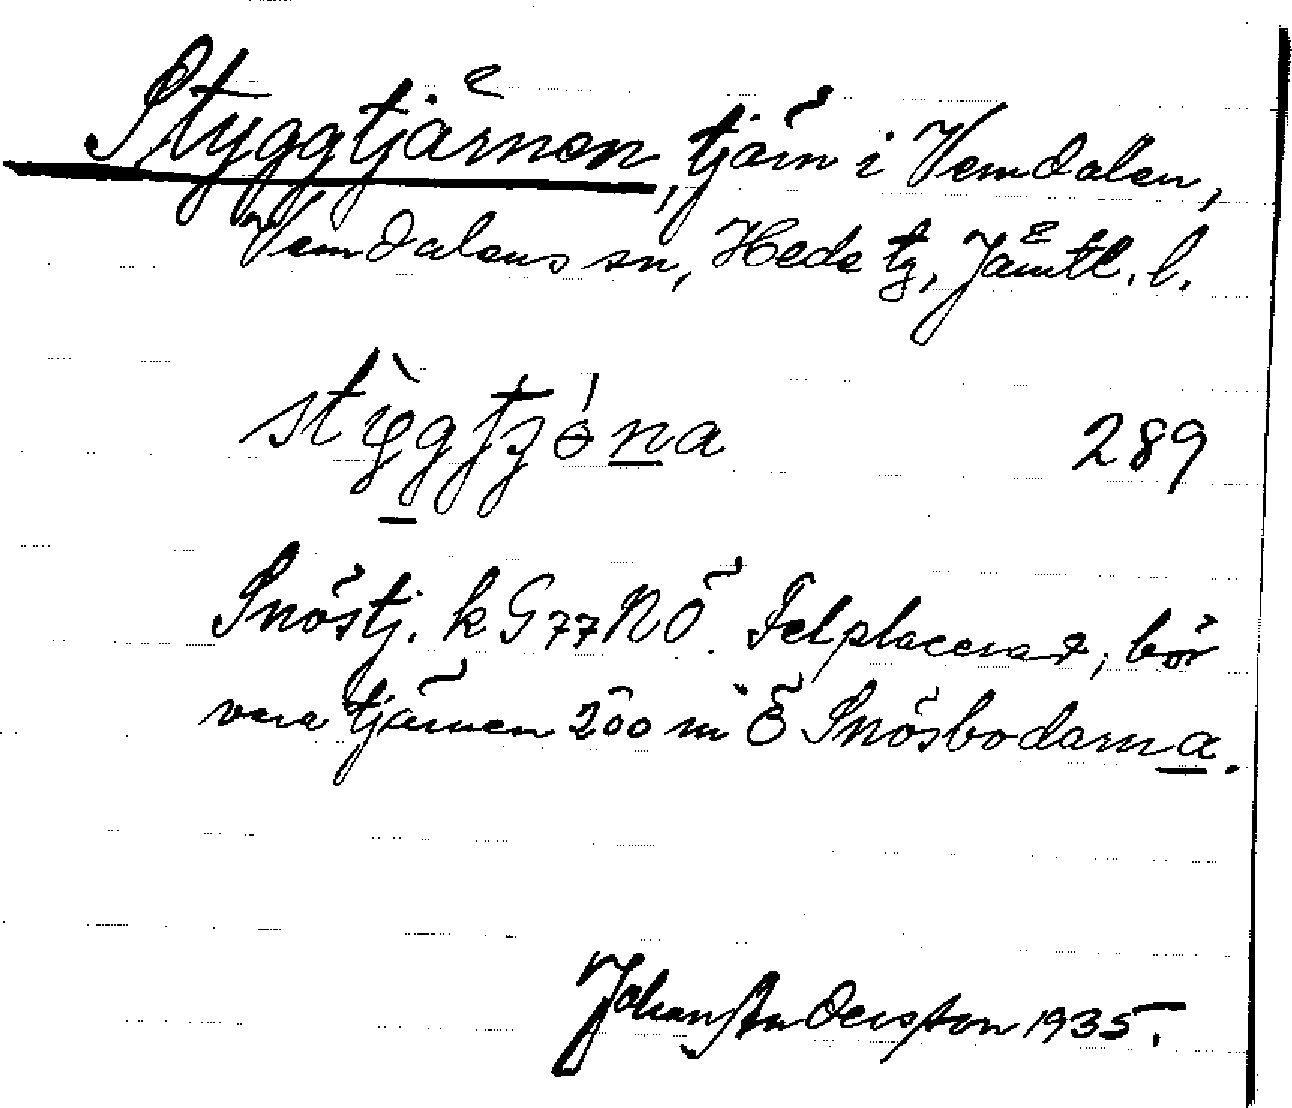 Styggtjärnen, tjärn i Vemdalen,
Vemdalens sn, Hede tg, Jämtl. l.
stỳgtjóna 289
Snöstj. k G77NÖ. Felplacerat, bör
vara tjärnen 200 m Ö Snösbodarna.
Johan Andersson 1935.